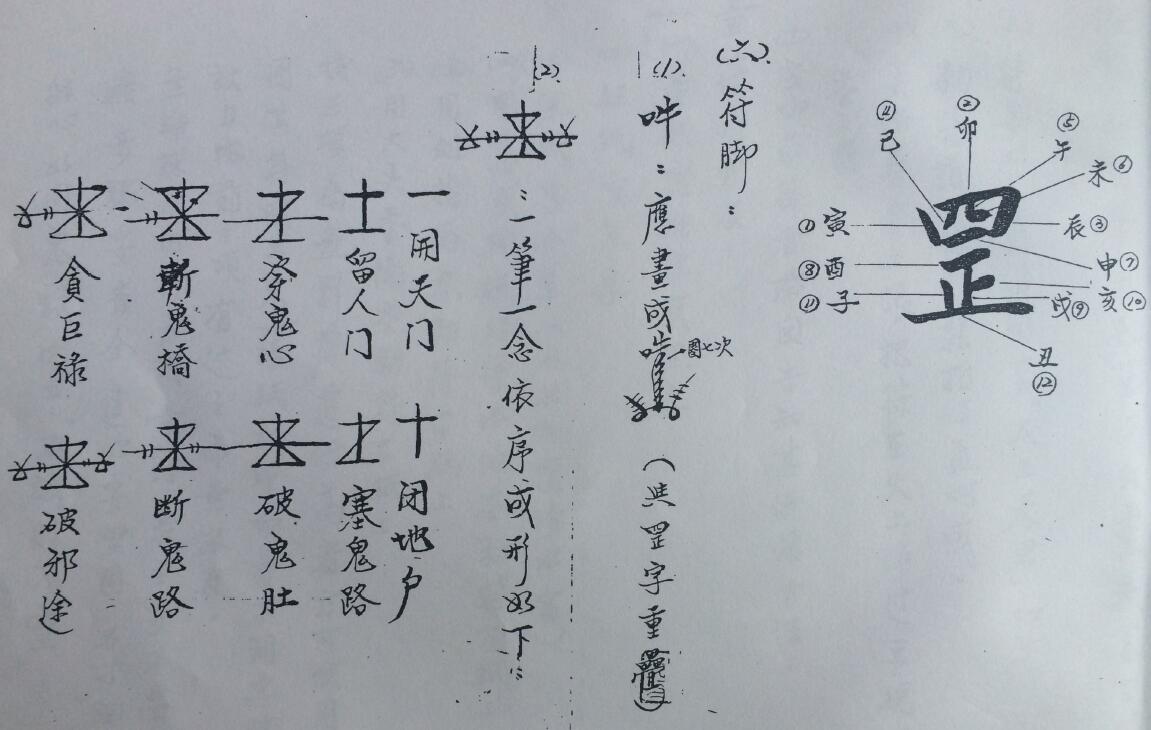 ④ 己
② 卯
⑤ 午
未 ⑥
① 寅
辰 ③
申 ⑦
⑧ 酉
亥 ⑩
⑪ 子
戍 ⑨
丑 ⑫
罡
(六)、符脚：
(1)、吽：應畫成
圈七次
(與罡字重疊)
(2)、
：一筆一念依序成形如下：
一 開天门
十 闭地户
土 留人门
塞鬼路
穿鬼心
破鬼肚
斬鬼橋
断鬼路
貪巨禄
破邪途